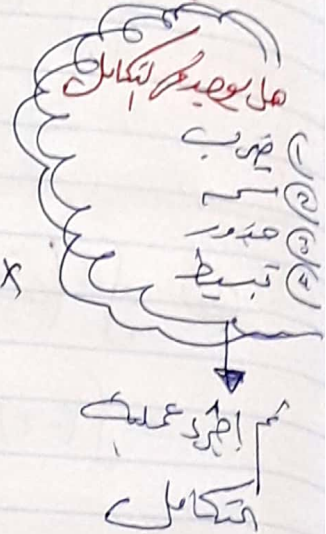 هل يوجد في التكامل
① ضرب
②
③ جذور
④ تبسيط
X
ثم اجراء عملية
التكامل